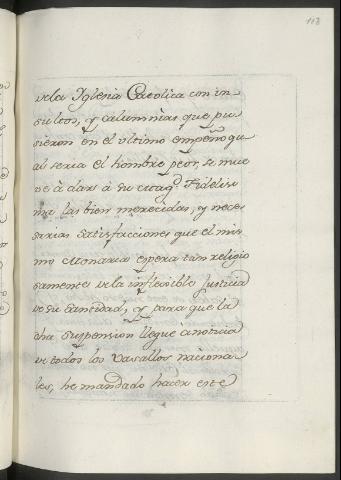 118
de la Iglesia Catolica con in
sultos, y calumnias que pu
sieron en el ultimo empeño qu
al seria el hombre peor, se mue
ve à dar à su Mag.d Fidelisi
ma las bien merecidas, y nece
sarias satisfacciones que el mis
mo Monarca espera tan religio
samente de la inflexible Justicia
de su Santidad, y para que la
dha suspension llegue à noticia
de todos los Vasallos naciona
les, he mandado hacer este